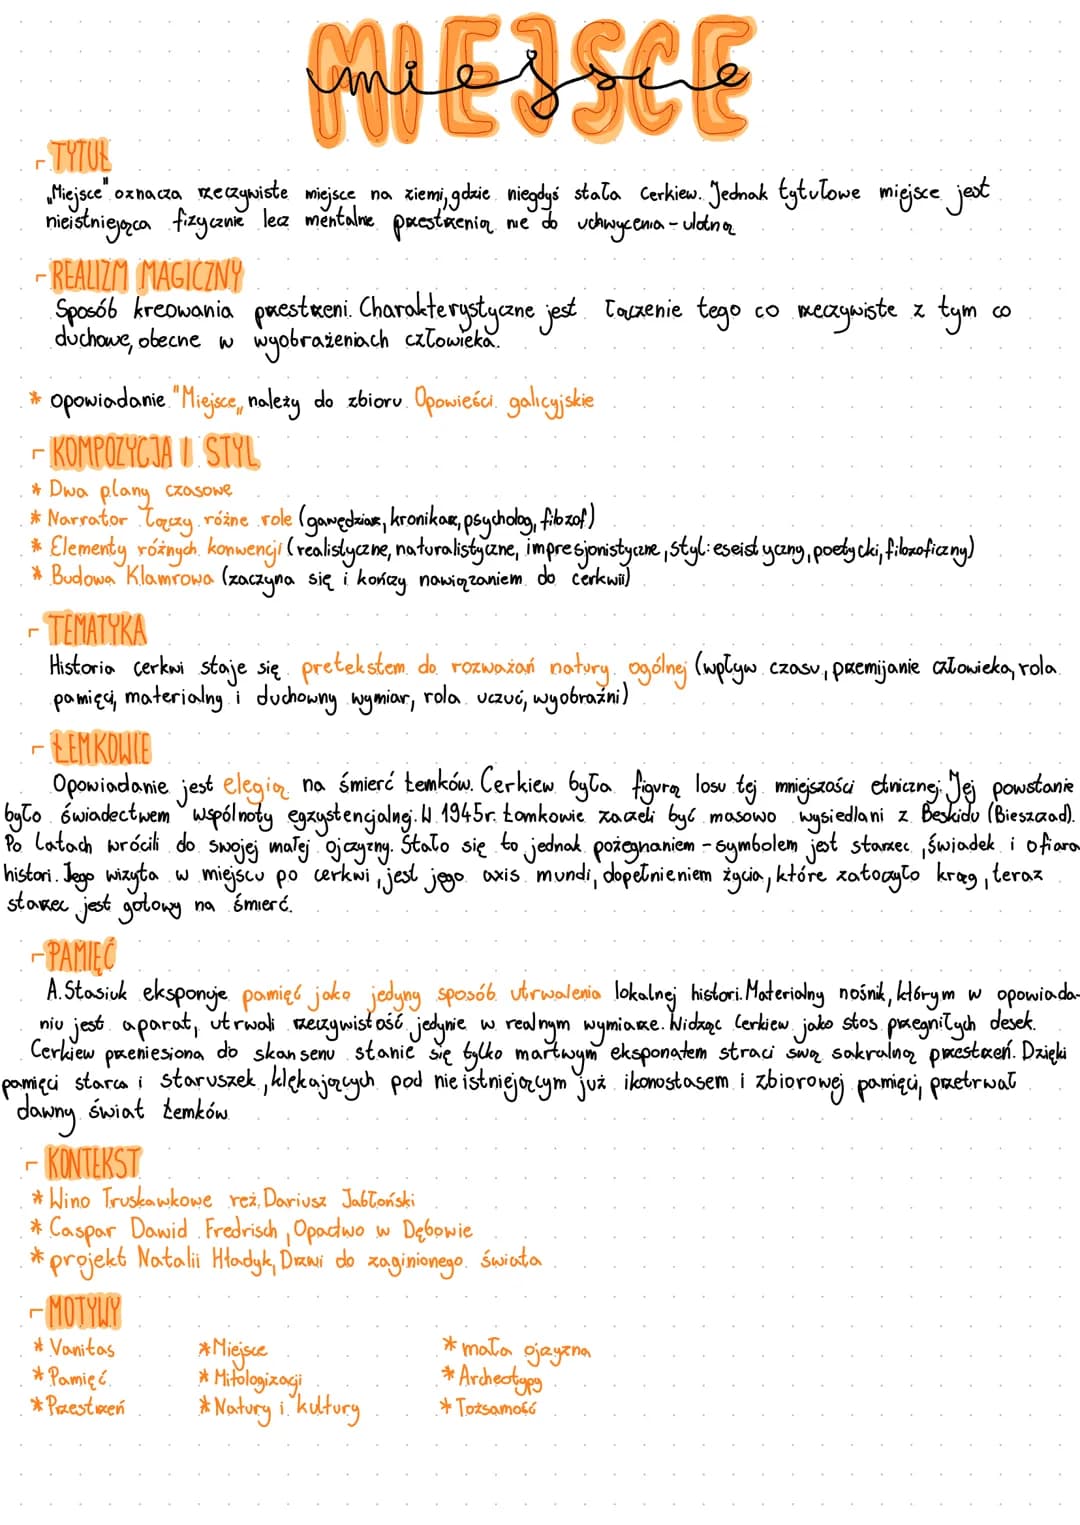 MIEJSCE
miejsce
TYTUŁ
„Miejsce" oznacza rzeczywiste miejsce na ziemi, gdzie niegdyś stała Cerkiew. Jednak tytułowe miejsce jest
nieistniejąca fizycznie lecz mentalne przestrzenią nie do uchwycenia - ulotną
REALIZM MAGICZNY
Sposób kreowania przestrzeni. Charakterystyczne jest łączenie tego co rzeczywiste z tym co
duchowe, obecne w wyobrażeniach człowieka.
* opowiadanie "Miejsce„ należy do zbioru Opowieści galicyjskie
KOMPOZYCJA I STYL
* Dwa plany czasowe
* Narrator łączy różne role (gawędziarz, kronikarz, psycholog, filozof)
* Elementy różnych konwencji (realistyczne, naturalistyczne, impresjonistyczne, styl: eseistyczny, poetycki, filozoficzny)
* Budowa Klamrowa (zaczyna się i kończy nawiązaniem do cerkwii)
TEMATYKA
Historia cerkwi staje się pretekstem do rozważań natury ogólnej (wpływ czasu, przemijanie człowieka, rola
pamięci, materialny i duchowny wymiar, rola uczuć, wyobraźni)
ŁEMKOWIE
Opowiadanie jest elegią na śmierć Łemków. Cerkiew była figurą losu tej mniejszości etnicznej. Jej powstanie
było świadectwem wspólnoty egzystencjalnej. W 1945r. Łomkowie zaczeli być masowo wysiedlani z Beskidu (Bieszczad).
Po latach wrócili do swojej małej ojczyzny. Stało się to jednak pożegnaniem - symbolem jest starzec, świadek i ofiara
histori. Jego wizyta w miejscu po cerkwi, jest jego axis mundi, dopełnieniem życia, które zatoczyło krąg, teraz
starzec jest gotowy na śmierć.
PAMIĘĆ
A.Stasiuk eksponuje pamięć jako jedyny sposób utrwalenia lokalnej histori. Materialny nośnik, którym w opowiada-
niu jest aparat, utrwali rzeczywistość jedynie w realnym wymiarze. Widząc Cerkiew jako stos przegniłych desek.
Cerkiew przeniesiona do skansenu stanie się tylko martwym eksponatem straci swą sakralną przestrzeń. Dzięki
pamięci starca i staruszek, klękających pod nieistniejącym już ikonostasem i zbiorowej pamięci, przetrwał
dawny świat Łemków
KONTEKST
* Wino Truskawkowe reż. Dariusz Jabłoński
* Caspar Dawid Fredrisch, Opactwo w Dębowie
* projekt Natalii Hładyk, Drzwi do zaginionego świata
MOTYWY
* Vanitas * Miejsce * mała ojczyzna
* Pamięć * Mitologizacji * Archeotypy
* Przestrzeń * Natury i kultury * Tożsamość